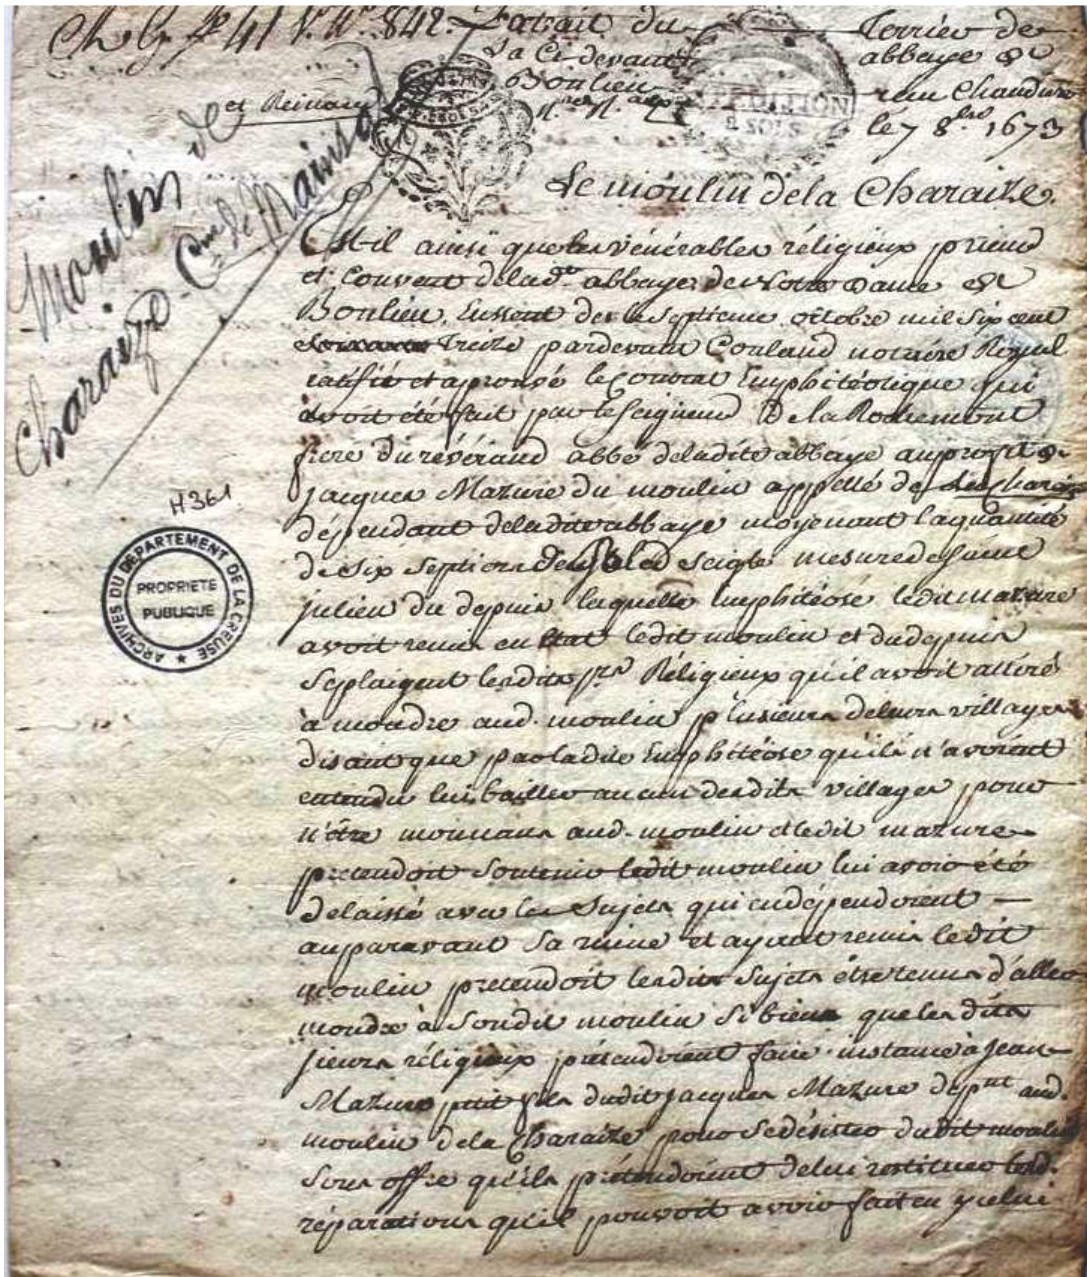 Extrait du Terrier de
la Ci devant abbaye de
Bonlieu
et Reinaud
le 7 8bre 1673
EXPEDITION
2 SOLS
Moulin de
Charaize Cne de Mainsat
Le moulin de la Charaize.
Est-il ainsi que les vénérables réligieux prieur
et Couvent de lad.te abbaye de Notre Dame de
Bonlieu, Eussent des le Septieme octobre mil Six cent
Treize pardevant Couland notaire Royal
ratifié et aprouvé le Contrat Emphitéotique qui
avoit été fait par le Seigneur De la Rochemont
frere du révérand abbé deladite abbaye au profit de
jacques Mazure du moulin appellé de la Charaize
dépendant deladite abbaye moyenant la quantité
de six Septiers bled seigle mesure de saint
julien du depuis laquelle Emphitéose ledit mazure
avoit remis en Etat ledit moulin et du depuis
Seplaigent lesdits Réligieux qu'il avoit attiré
à moudre aud. moulin plusieurs deleurs villages
disant que par ladite Emphitéose qu'ils n'avoient
entendu lui bailler aucun desdits villages pour
n'être mouvans aud. moulin et ledit mazure
pretendoit Soutenir ledit moulin lui avoir été
delaissé avec les Sujets qui endépendoient
auparavant Sa ruine et ayant remis ledit
moulin pretendoit lesdits Sujets être tenus d'aller
moudre à Sondit moulin Si bien que lesdits
sieurs réligieux prétendoient faire instance à Jean
Mazure petit fils dudit jacques Mazure aud.
moulin de la Charaize pour Se désister dudit moulin
Sous offre qu'ils prétendoient de lui restituer lesd.
réparations qu'il pouvoit avoir fait en ycelui
H361
ARCHIVES DU DEPARTEMENT DE LA CREUSE
PROPRIETE
PUBLIQUE